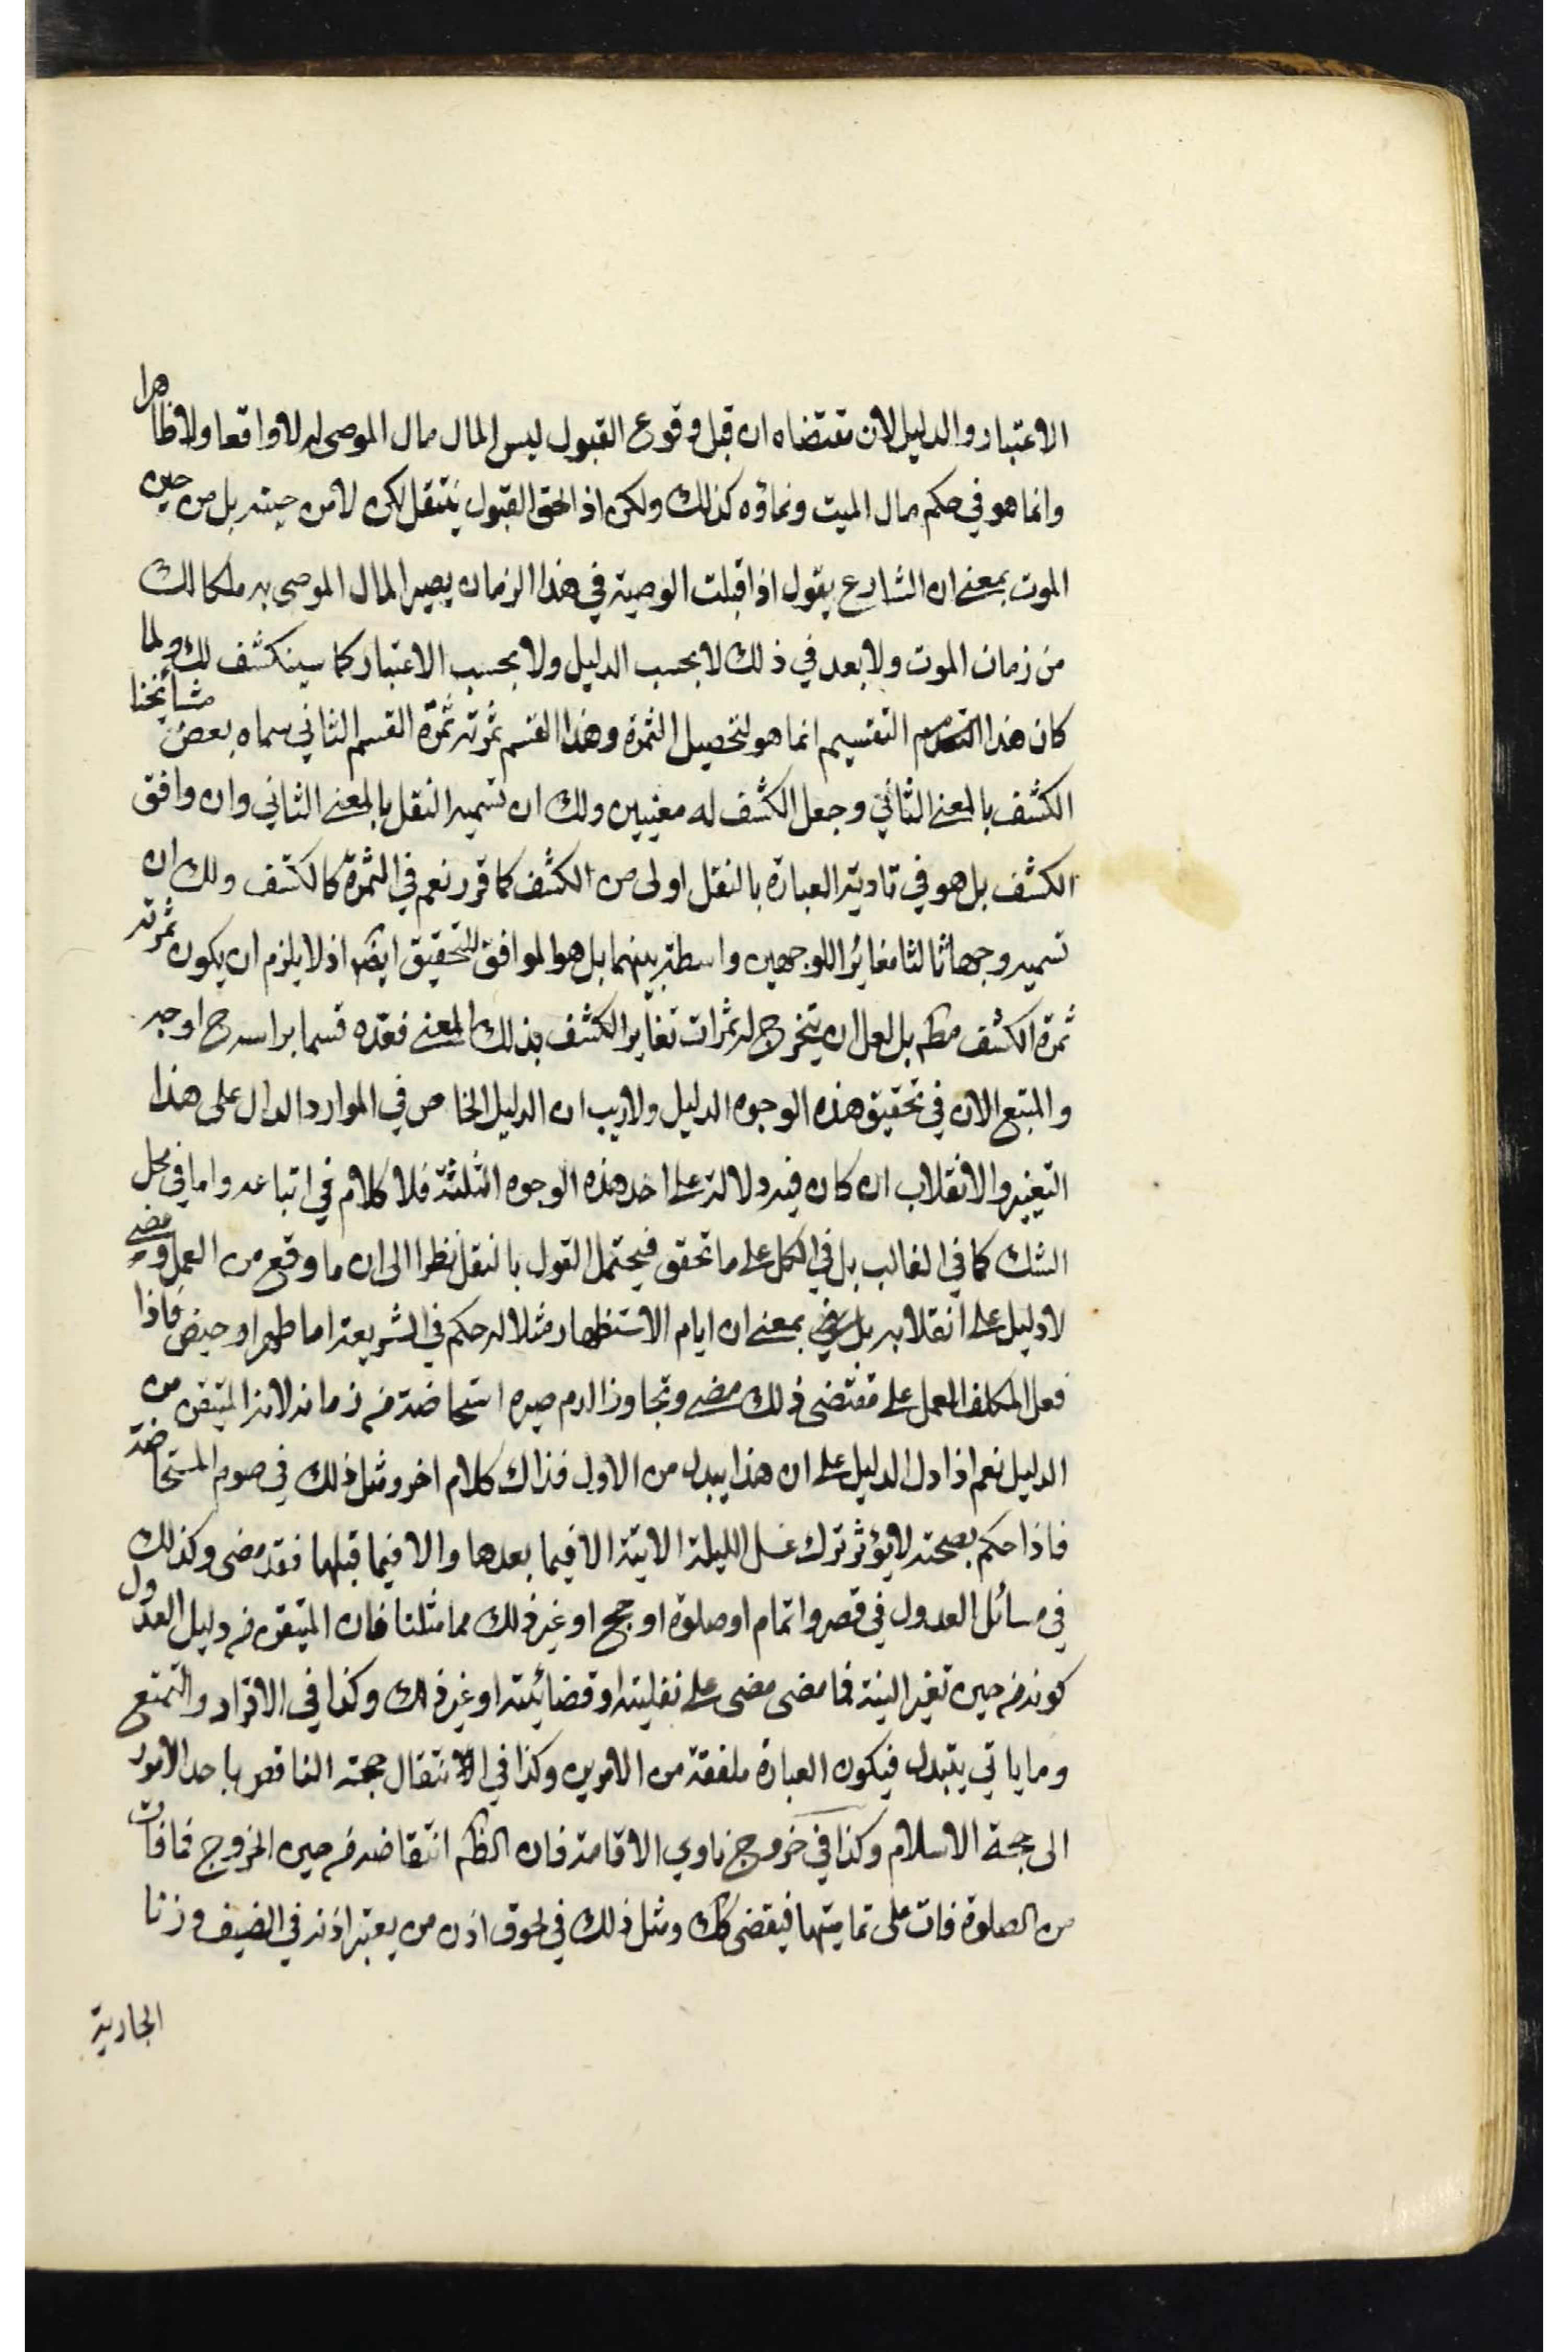 الاعتبار والدليل لان مقتضاه ان قبل وقوع القبول ليس المال مال الموصى له لا واقعا ولا ظاهرا
وانما هو في حكم مال الميت ونماؤه كذلك ولكن اذا لحق القبول ينتقل لكن لا من حينه بل من حين
الموت بمعنى ان الشارع يقول اذا قبلت الوصية في هذا الزمان يصير المال الموصى به ملكا لك
من زمان الموت ولا بعد في ذلك لا بحسب الدليل ولا بحسب الاعتبار كما سينكشف لك ولما
كان هذا التقسيم انما هو لتحصيل الثمرة وهذا القسم ثمرته ثمرة القسم الثاني سماه بعض مشائخنا
الكشف بالمعنى الثاني وجعل الكشف له معنيين ولك ان تسميه النقل بالمعنى الثاني وان وافق
الكشف بل هو في تادية العبارة بالنقل اولى من الكشف كما قرر نعم في الثمرة كالكشف ولك ان
تسميه وجها ثالثا مغائرا للوجهين واسطة بينهما بل هو الموافق للتحقيق ايضا اذ لا يلزم ان يكون ثمرته
ثمرة الكشف مطم بل لعل ان يتخرج له ثمرات تغاير الكشف بذلك المعنى فعده قسما براسه ح اوجه
والمتبع الان في تحقيق هذه الوجوه الدليل ولا ريب ان الدليل الخاص في الموارد الدال على هذا
التغيير والانقلاب ان كان فيه دلالة على احد هذه الوجوه الثلثة فلا كلام في اتباعه واما في محل
الشك كما في الغالب بل في الكل على ما تحقق فيحتمل القول بالنقل نظرا الى ان ما وقع من العمل ومضى
لا دليل على انقلابه بل مضى بمعنى ان ايام الاستظهار مثلا له حكم في الشريعة اما طهر او حيض فاذا
فعل المكلف العمل على مقتضى ذلك مضى وتجاوز الدم صيره استحاضة من زمانه لانه المتيقن من
الدليل نعم اذا دل الدليل على ان هذا يبدل من الاول فذاك كلام اخر ومثل ذلك في صوم المستحاضة
فاذا حكم بصحته لا يؤثر ترك غسل الليلة الاتية الا فيما بعدها والا فيما قبلها فقد مضى وكذلك
في مسائل العدول في قصر واتمام او صلوة او حج او غير ذلك مما مثلنا فان المتيقن من دليل العدول
كونه من حين تغير النية فما مضى مضى على نفليته او قضائيته او غير ذلك وكذا في الافراد والتمتع
وما ياتي يتبدل فيكون العبارة ملفقة من الامرين وكذا في الانتقال حجة الناقص باحد الامور
الى حجة الاسلام وكذا في خروج ناوي الاقامة فان الظم انتقاضه من حين الخروج فما فات
من الصلوة فات على تماميتها فيقضى كك ومثل ذلك في لحوق اذن من يعتبر اذنه في الضيف وزنا
الجارية